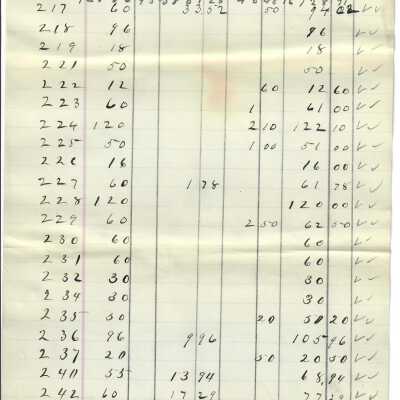 217 60 33 52 50 94 02 ✓✓
218 96 96 ✓✓
219 18 18 ✓✓
221 50 50 ✓✓
222 12 60 12 60 ✓✓
223 60 1 61 00 ✓✓
224 120 2 10 122 10 ✓✓
225 50 1 00 51 00 ✓✓
226 16 16 00 ✓✓
227 60 1 78 61 78 ✓✓
228 120 120 00 ✓✓
229 60 2 50 62 50 ✓✓
230 60 60 ✓✓
231 60 60 ✓✓
232 30 30 ✓✓
234 30 30 ✓✓
235 50 20 50 20 ✓✓
236 96 9 96 105 96 ✓✓
237 20 50 20 50 ✓✓
240 55 13 94 68,94 ✓✓
242 60 17 29 77 29 ✓✓